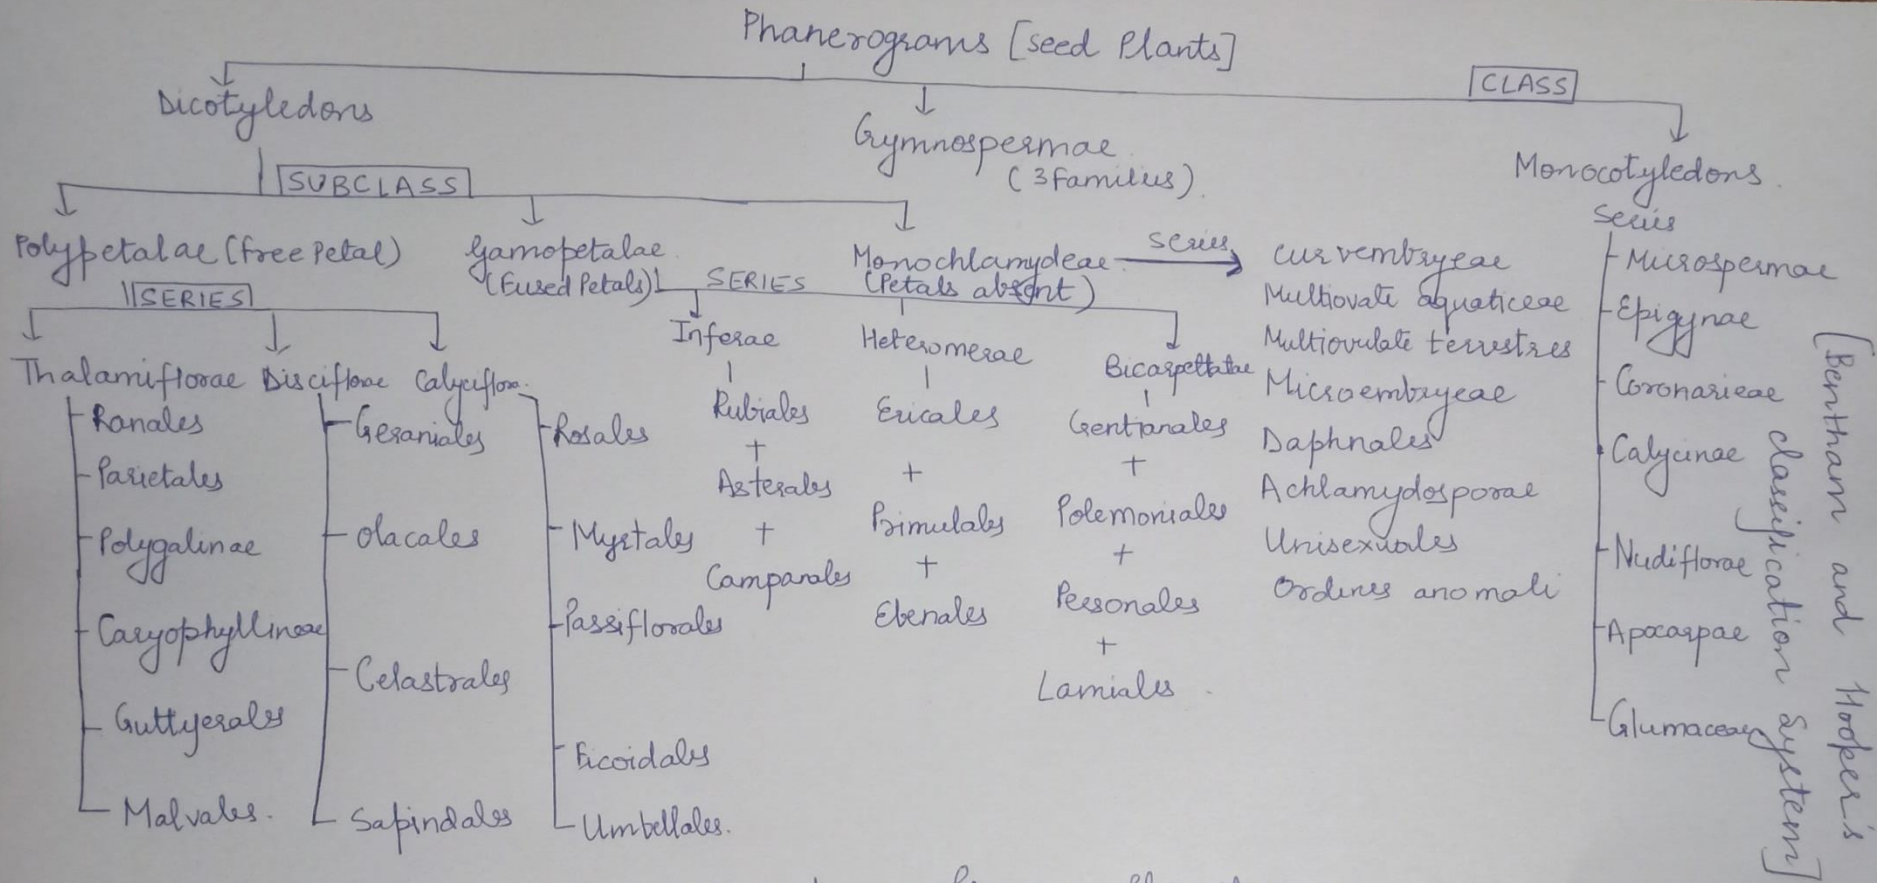 Phanerograms [seed Plants]
CLASS
Dicotyledons
Gymnospermae
(3 families).
Monocotyledons.
SUBCLASS
Series
Polypetalae (free Petal)
Gamopetalae
(Fused Petals)
SERIES
Monochlamydeae
(Petals absent)
Series
SERIES
Thalamiflorae Disciflorae Calyciflora.
Ranales
Parietales
Polygalinae
Caryophyllineae
Guttyerales
Malvales.
Geraniales
Olacales
Celastrales
Sapindales
Rosales
Myrtales
Passiflorales
Ficoidales
Umbellales.
Inferae
Rubiales
+
Asterales
+
Campanales
Heteromerae
Ericales
+
Primulales
+
Ebenales
Bicarpellatae
Gentianales
+
Polemoniales
+
Personales
+
Lamiales
Curvembryeae
Multiovate aquaticeae
Multiovulate terrestres
Microembryeae
Daphnales
Achlamydosporae
Unisexuales
Ordines anomali
Microspermae
Epigynae
Coronarieae
Calycinae
Nudiflorae
Apocarpae
Glumaceae
[Bentham and Hooker's
classification System]